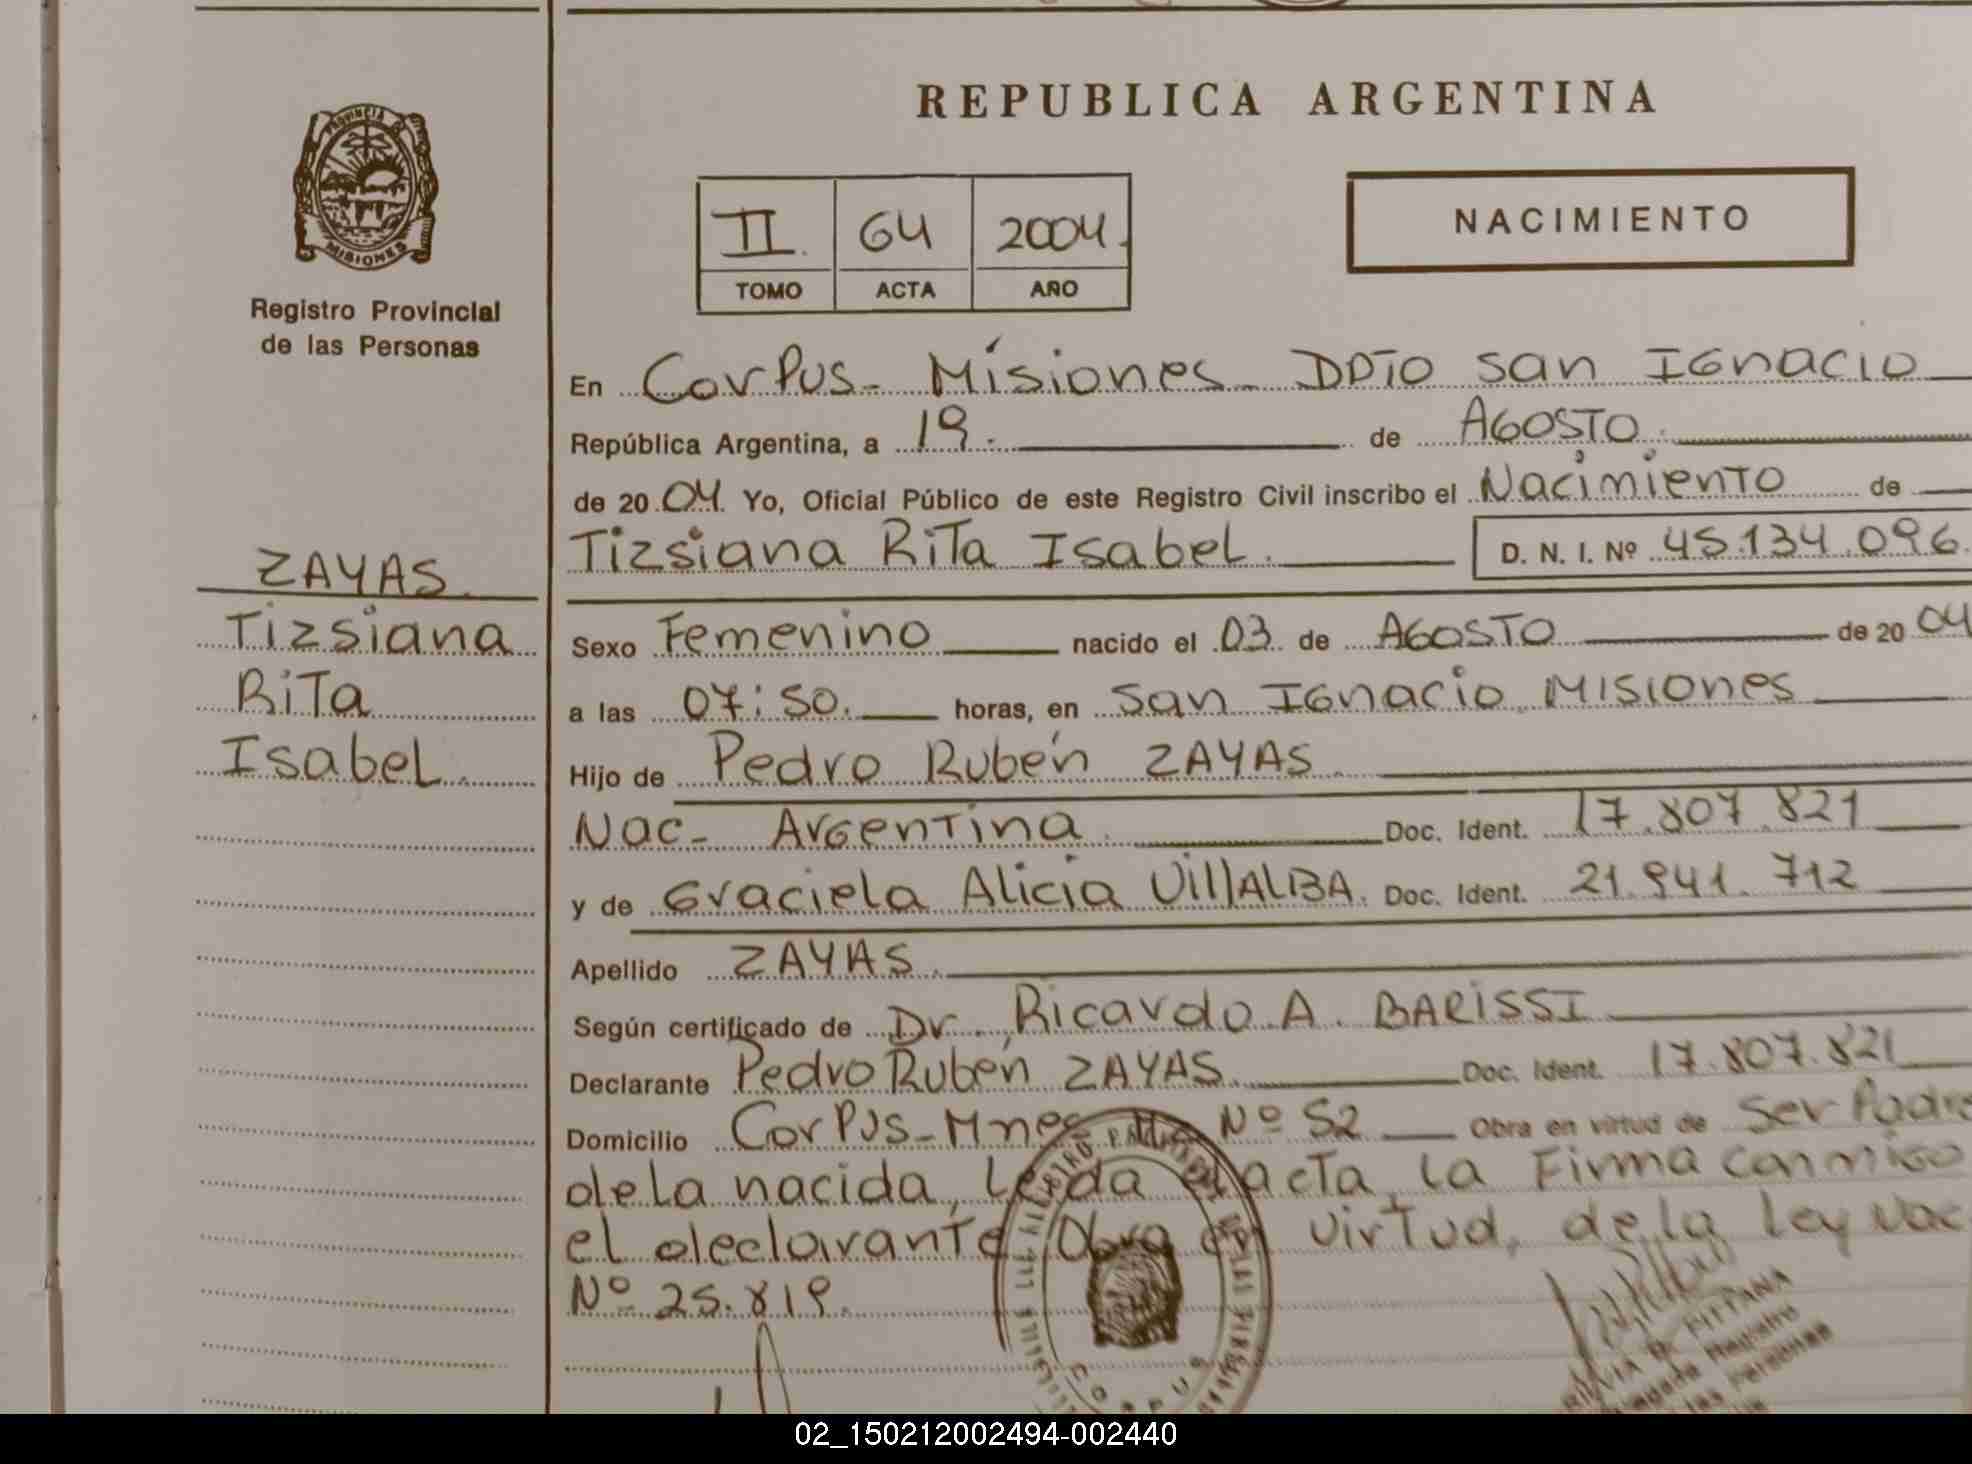 REPUBLICA ARGENTINA
PROVINCIA DE
MISIONES
Registro Provincial
de las Personas
II. 64 2004.
TOMO ACTA AÑO
NACIMIENTO
En Corpus - Misiones - DPTO San Ignacio
República Argentina, a 19. de AGOSTO.
de 20 04. Yo, Oficial Público de este Registro Civil inscribo el Nacimiento de
Tizsiana RiTa Isabel. D. N. I. Nº 45.134.096
ZAYAS.
Tizsiana
RiTa
Isabel.
Sexo Femenino nacido el 03 de AGOSTO de 20 04
a las 07:50. horas, en San Ignacio Misiones
Hijo de Pedro Rubén ZAYAS.
Nac- Argentina. Doc. Ident. 17.807.821
y de Graciela Alicia VillALBA. Doc. Ident. 21.941.712
Apellido ZAYAS.
Según certificado de Dr. Ricardo A. BARISSI
Declarante Pedro Rubén ZAYAS. Doc. Ident. 17.807.821
Domicilio Corpus - Mnes Nº 52 Obra en virtud de Ser Padre
de la nacida, Leída el acta, la Firma conmigo
el declarante Obra en virtud, de la Ley Nac
Nº 25.819.
CORPUS
02_150212002494-002440